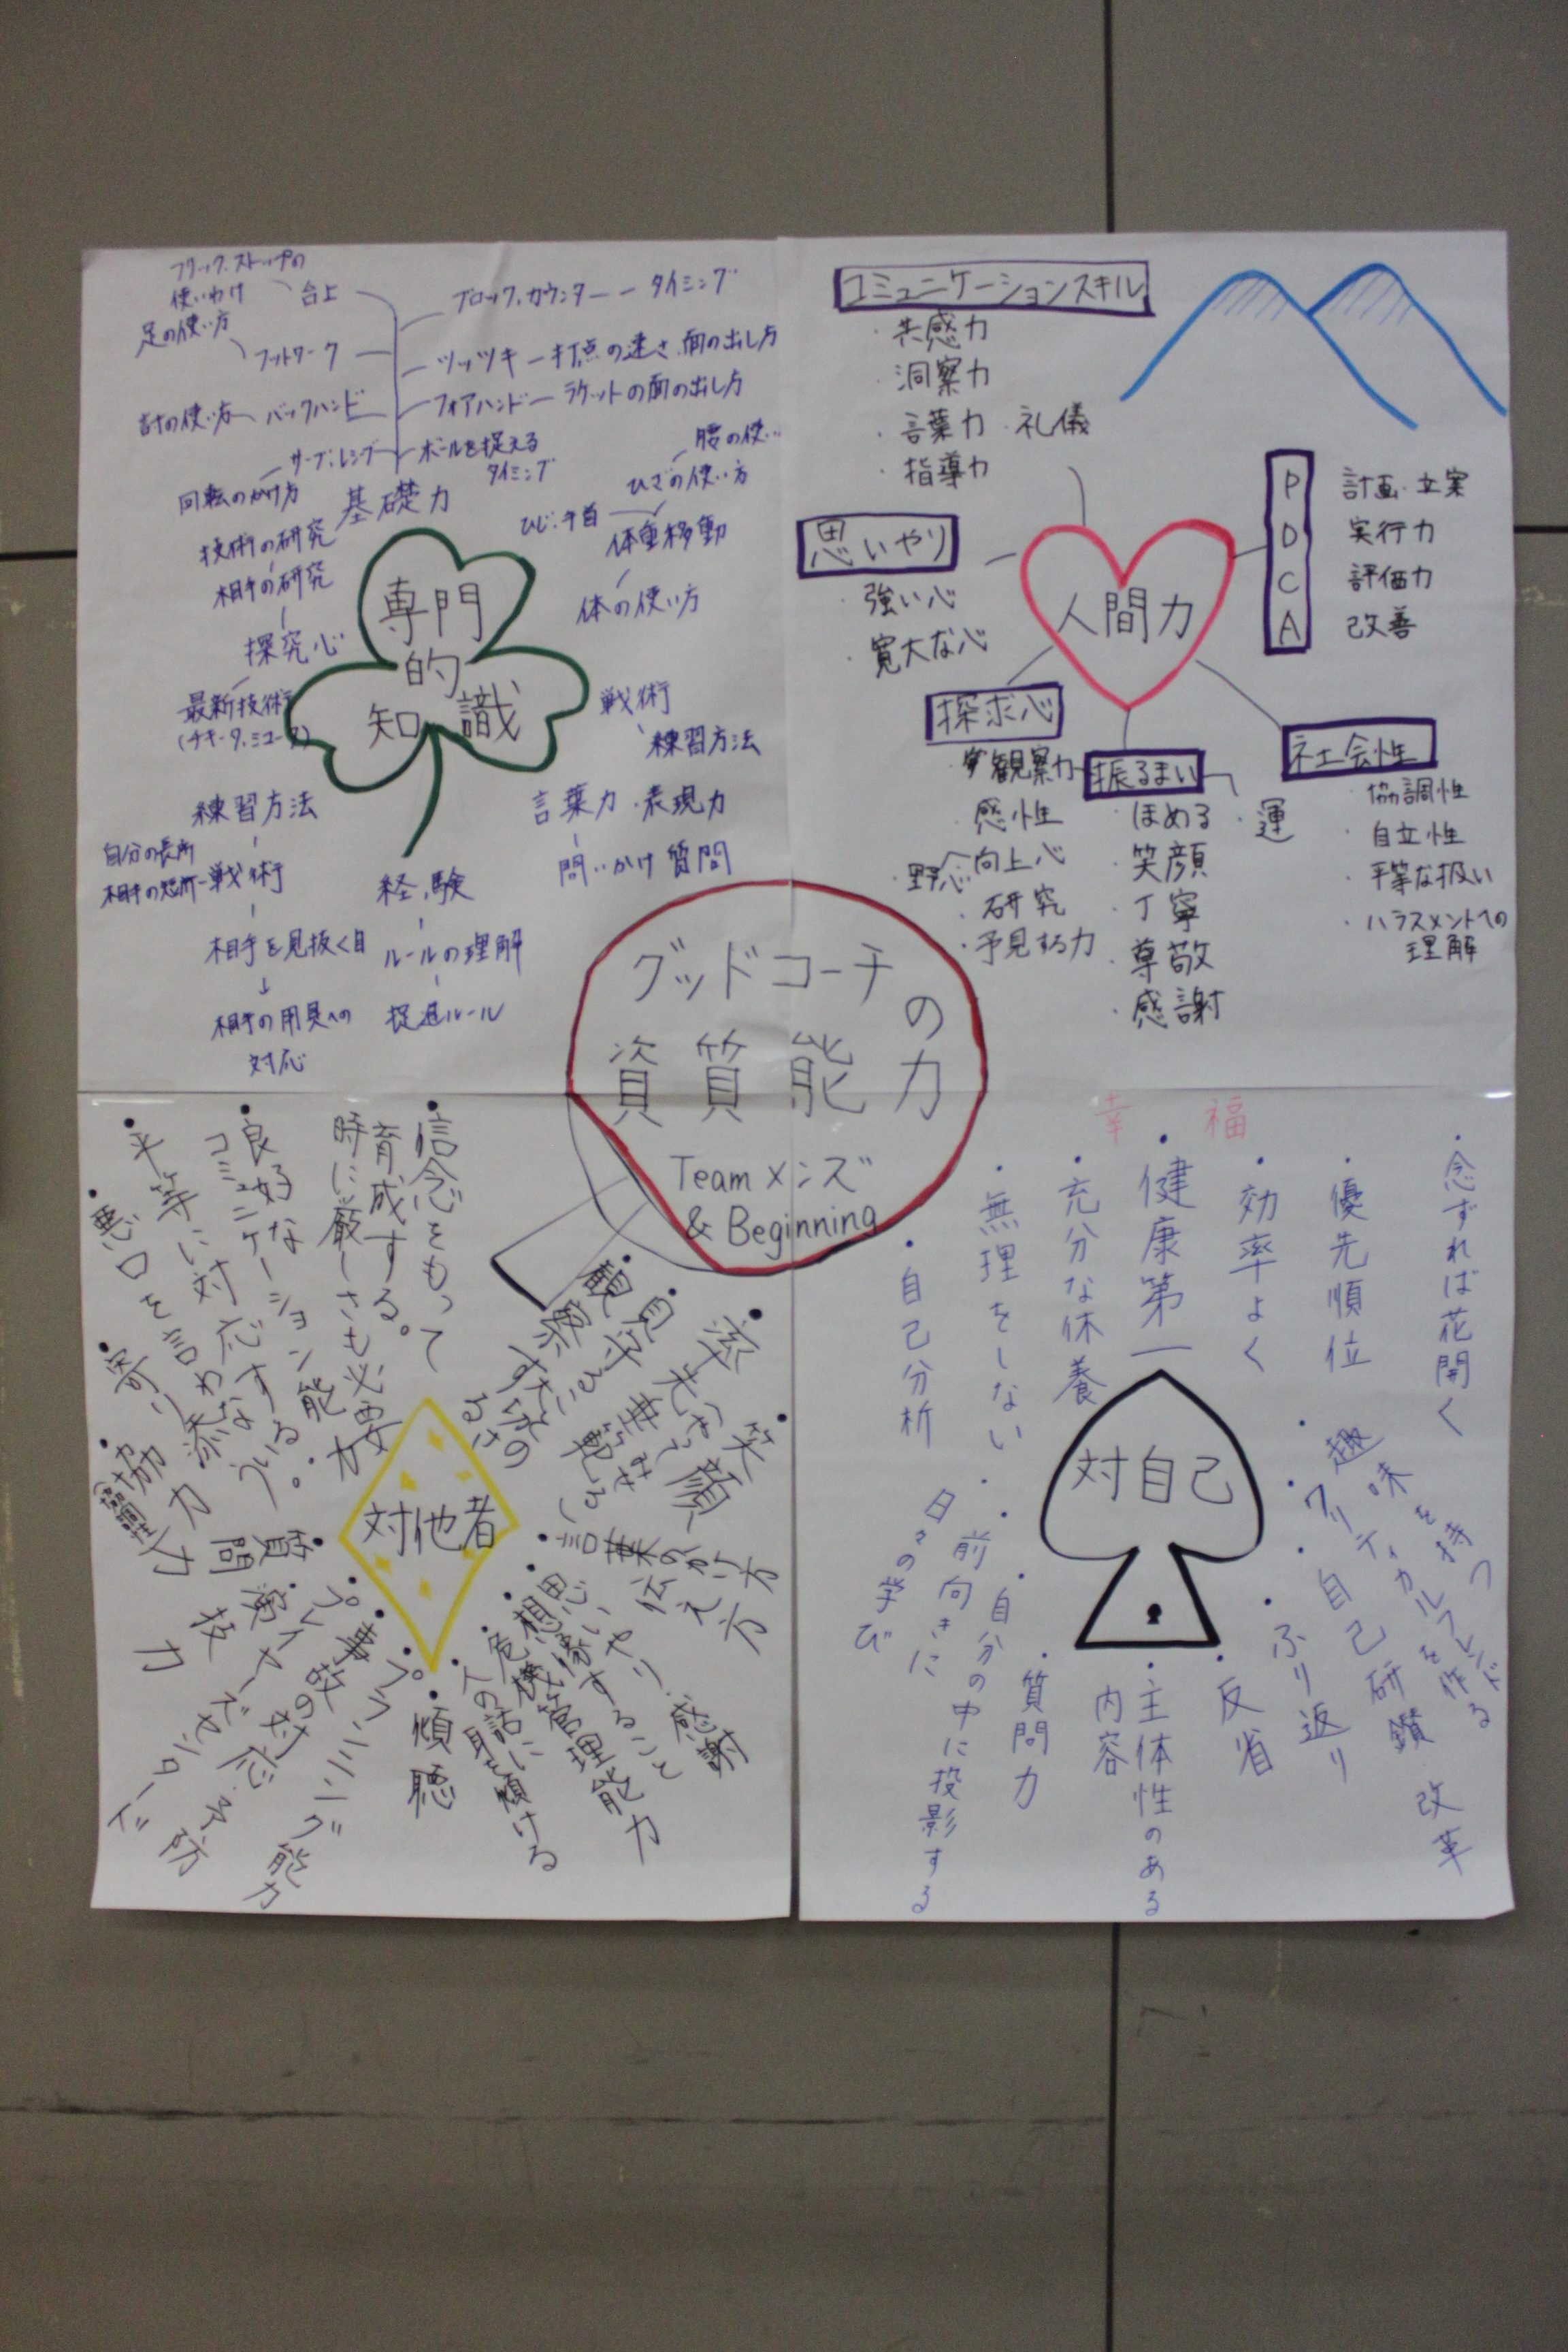 グッドコーチの
資質能力
Teamメンズ
& Beginning
専門
的
知識
フリック、ストップの
使いわけ
台上
足の使い方
フットワーク
バックハンド
サーブ、レシーブ
回転のかけ方
ブロック、カウンター ー タイミング
ツッツキ ー 打点の速さ、面の出し方
フォアハンド ー ラケットの面の出し方
ボールを捉える
タイミング
基礎力
技術の研究
相手の研究
探究心
最新技術
練習方法
自分の長所
相手の短所ー戦術
相手を見抜く目
↓
相手の用具への
対応
経験
ルールの理解
促進ルール
腰の使い
ひざの使い方
ひじ、手首
体重移動
体の使い方
戦術
練習方法
言葉力・表現力
問いかけ 質問
コミュニケーションスキル
・共感力
・洞察力
・言葉力・礼儀
・指導力
思いやり
・強い心
・寛大な心
人間力
P 計画・立案
D 実行力
C 評価力
A 改善
探求心
観察力
感性
・野心
向上心
・研究
・予見する力
振るまい
・ほめる
・笑顔
・丁寧
・尊敬
・感謝
・運
社会性
・協調性
・自立性
・平等な扱い
・ハラスメントへの
理解
対他者
・信念をもって
育成する。
時に厳しさも必要
・良好な
コミュニケーション能力
・平等に対応する。
・悪口を言わない。
・寄り添う力
・協力
(協調性)
・質問力
・演技力
・プレイヤーズセンタード
・事故の対応、予防
・プランニング能力
・傾聴
・人の話に
耳を傾ける
・危機管理能力
・想像すること
・思いやり、感謝
・言葉の伝え方
・笑顔
・観察する
幸福
対自己
・念ずれば花開く
・優先順位
・効率よく
・健康第一
・充分な休養
・無理をしない
・自己分析
・日々の学び
・前向きに
・自分の中に投影する
・質問力
・主体性のある
内容
・反省
・ふり返り
・自己研鑽
・クリティカルフレンド
を作る
・趣味を持つ
改革